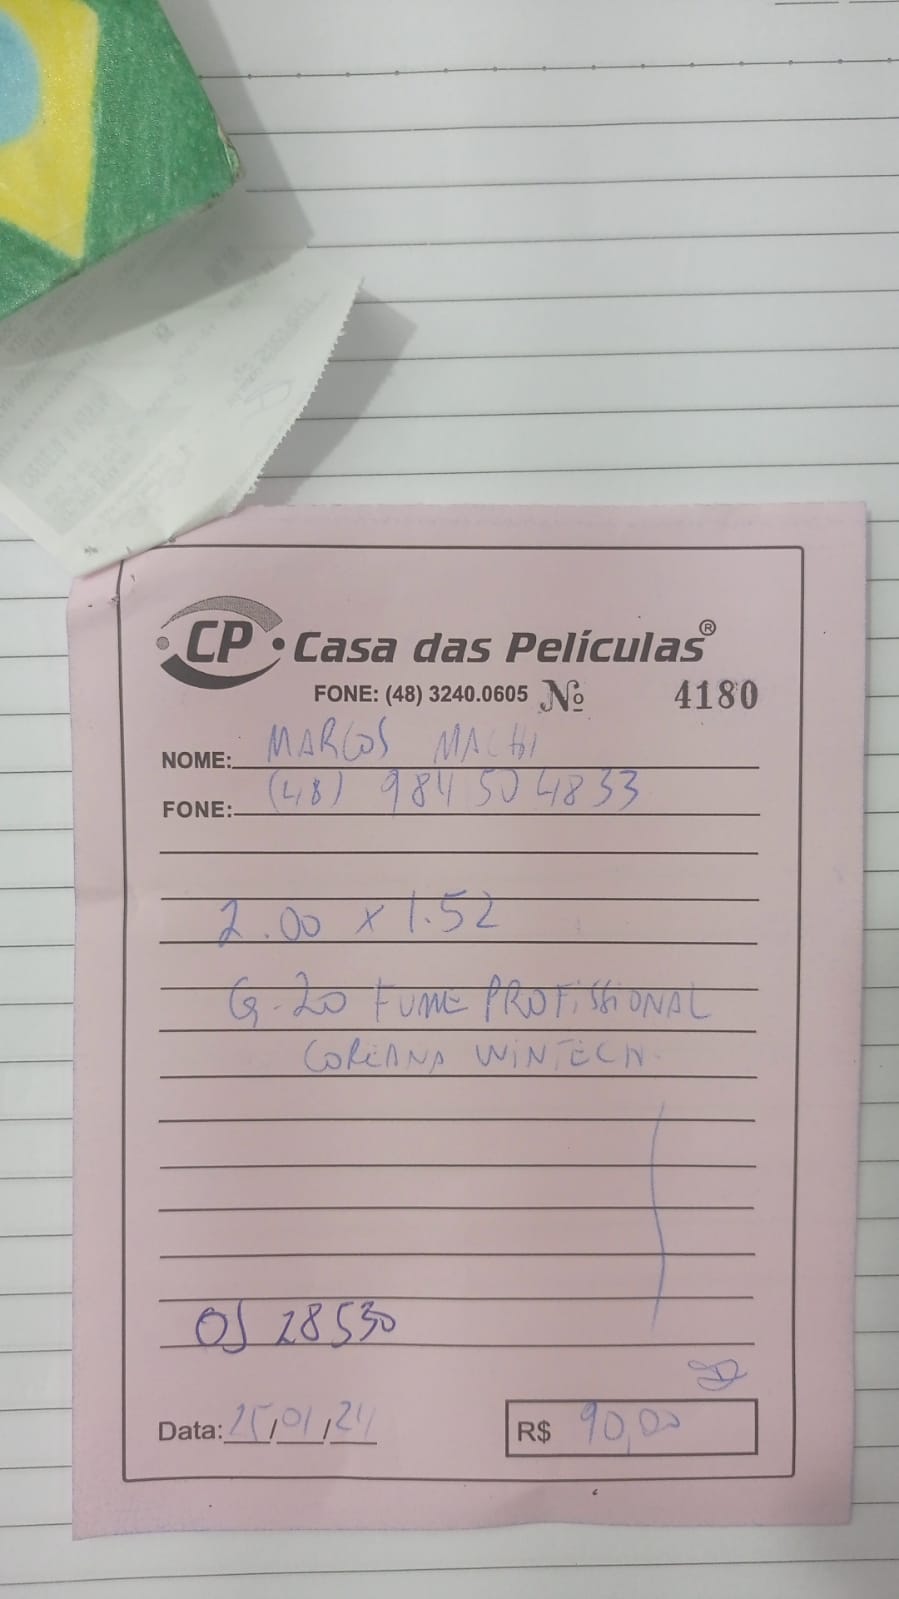 CP Casa das Películas®
FONE: (48) 3240.0605 Nº 4180
NOME: MARCOS MACHI
FONE: (48) 984504833
2.00 x 1.52
G-20 FUME PROFISSIONAL
COREANA WINTECH
OS 28530
Data: 25/01/24 R$ 90,00